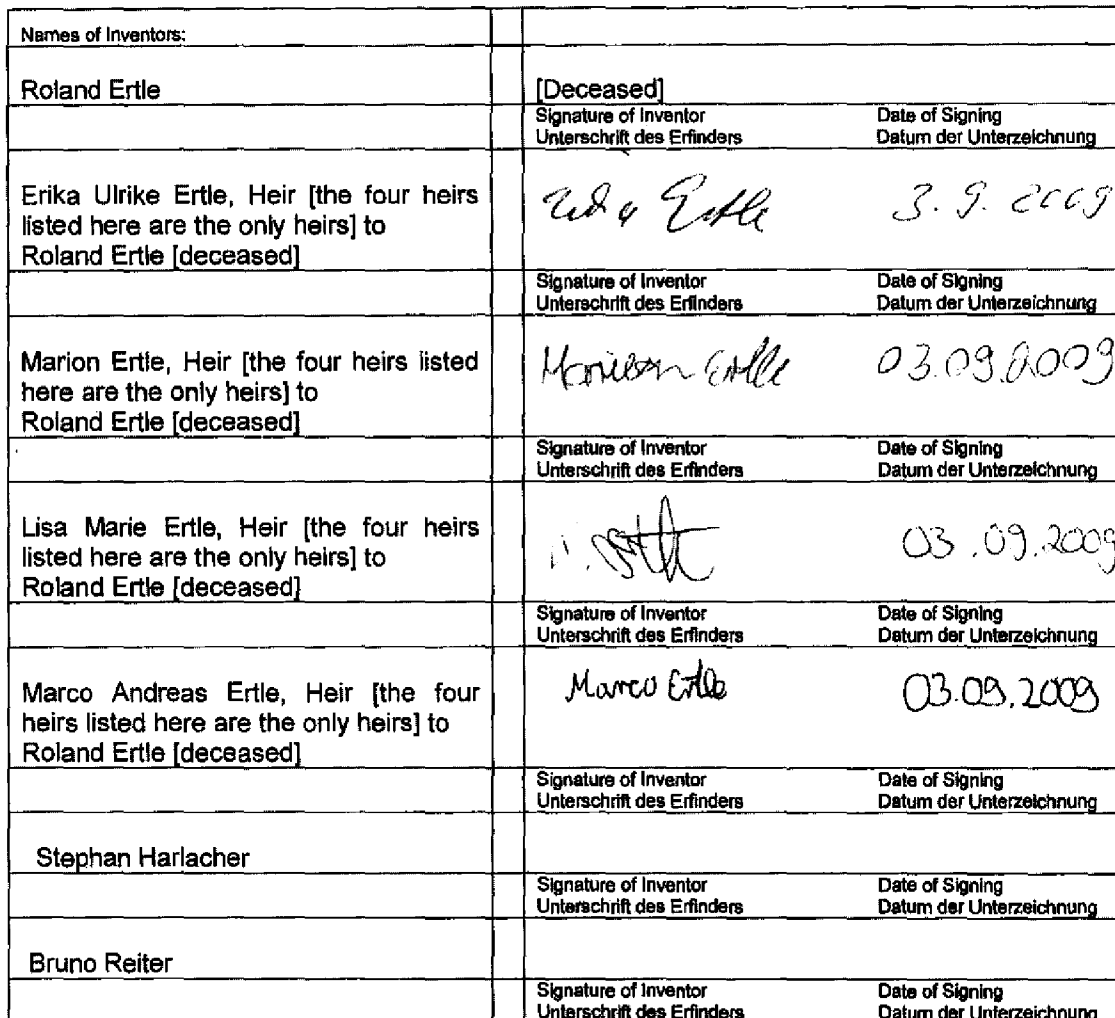 Names of Inventors:
Roland Ertle
[Deceased]
Signature of Inventor Date of Signing
Unterschrift des Erfinders Datum der Unterzeichnung
Erika Ulrike Ertle, Heir [the four heirs
listed here are the only heirs] to
Roland Ertle [deceased]
Ertle 3. 9. 2009
Signature of Inventor Date of Signing
Unterschrift des Erfinders Datum der Unterzeichnung
Marion Ertle, Heir [the four heirs listed
here are the only heirs] to
Roland Ertle [deceased]
Marion Ertle 03.09.2009
Signature of Inventor Date of Signing
Unterschrift des Erfinders Datum der Unterzeichnung
Lisa Marie Ertle, Heir [the four heirs
listed here are the only heirs] to
Roland Ertle [deceased]
03.09.2009
Signature of Inventor Date of Signing
Unterschrift des Erfinders Datum der Unterzeichnung
Marco Andreas Ertle, Heir [the four
heirs listed here are the only heirs] to
Roland Ertle [deceased]
Marco Ertle 03.09.2009
Signature of Inventor Date of Signing
Unterschrift des Erfinders Datum der Unterzeichnung
Stephan Harlacher
Signature of Inventor Date of Signing
Unterschrift des Erfinders Datum der Unterzeichnung
Bruno Reiter
Signature of Inventor Date of Signing
Unterschrift des Erfinders Datum der Unterzeichnung